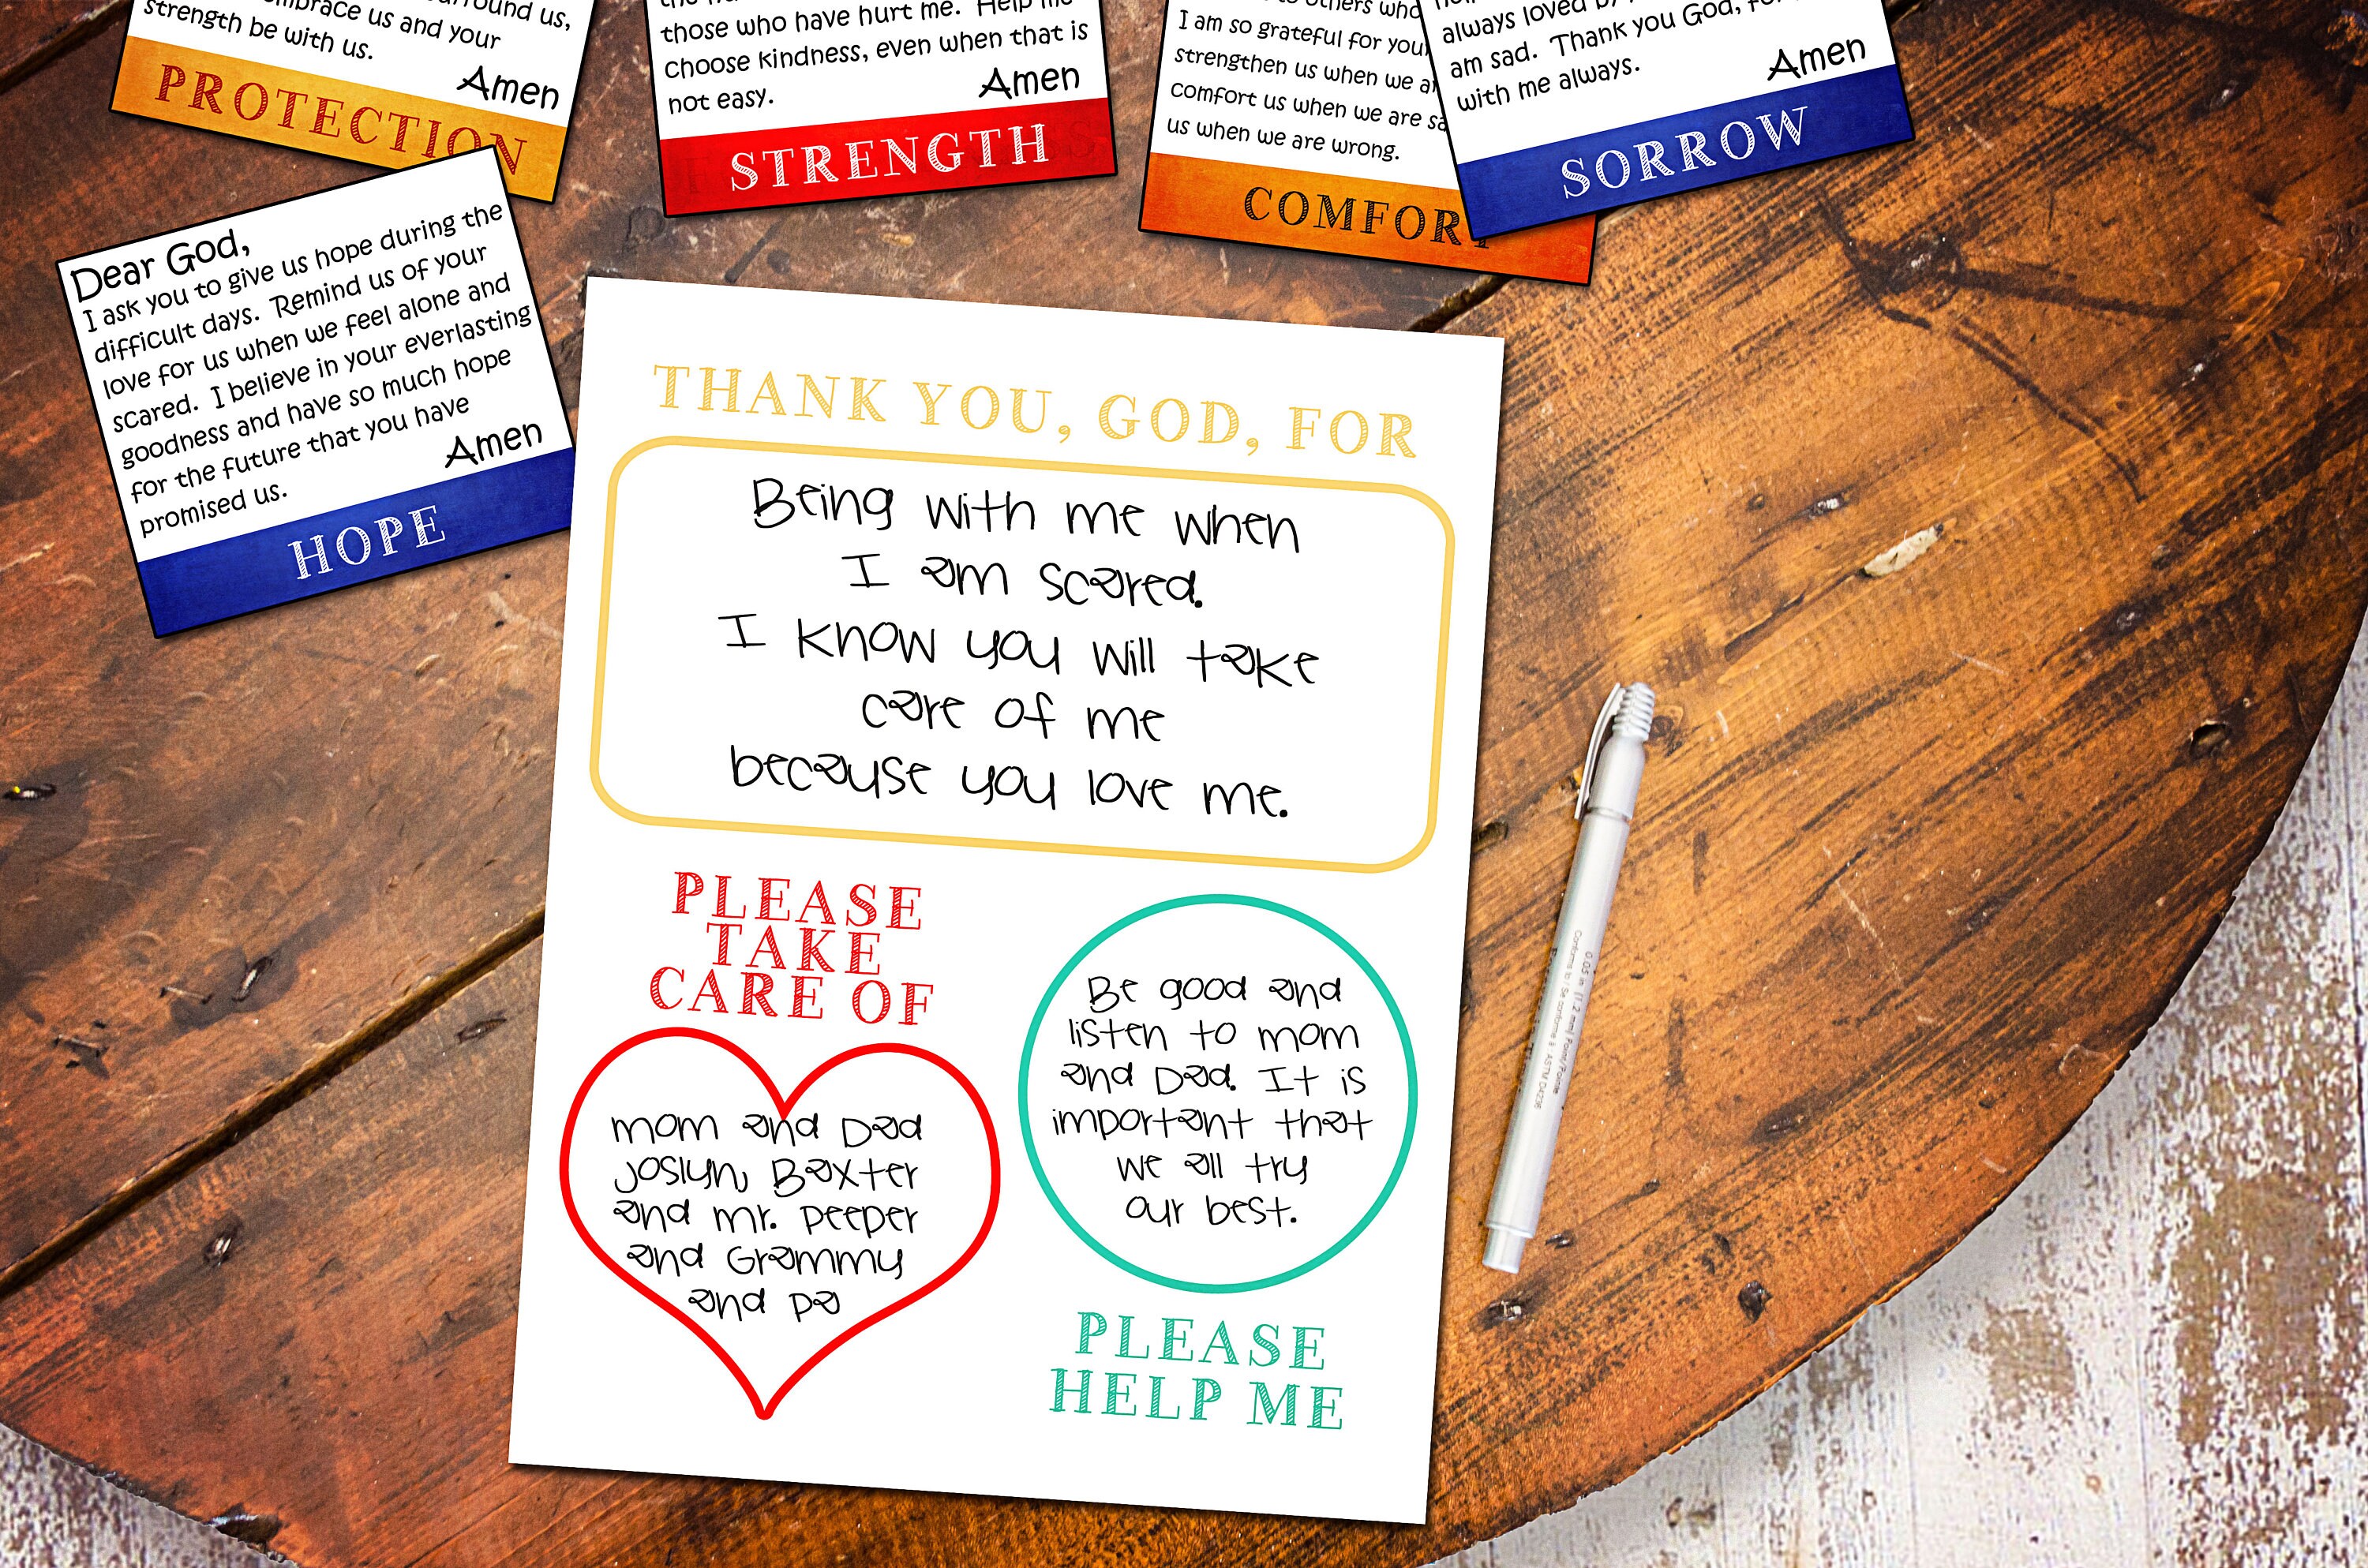 strength be with us.
Amen
PROTECTION
those who have hurt me. Help me
choose kindness, even when that is
not easy.
Amen
STRENGTH
I am so grateful for your
strengthen us when we
comfort us when we are
us when we are wrong.
COMFORT
always loved by
am sad. Thank you God, for
with me always.
Amen
SORROW
Dear God,
I ask you to give us hope during the
difficult days. Remind us of your
love for us when we feel alone and
scared. I believe in your everlasting
goodness and have so much hope
for the future that you have
promised us.
Amen
HOPE
THANK YOU, GOD, FOR
Being with me when
I am scared.
I know you will take
care of me
because you love me.
PLEASE
TAKE
CARE OF
mom and Dad
Joslyn, Baxter
and mr. peeper
and Grammy
and pa
Be good and
listen to mom
and Dad. It is
important that
we all try
our best.
PLEASE
HELP ME
0.05 in (1.2 mm) Point/Pointe
ASTM D4236